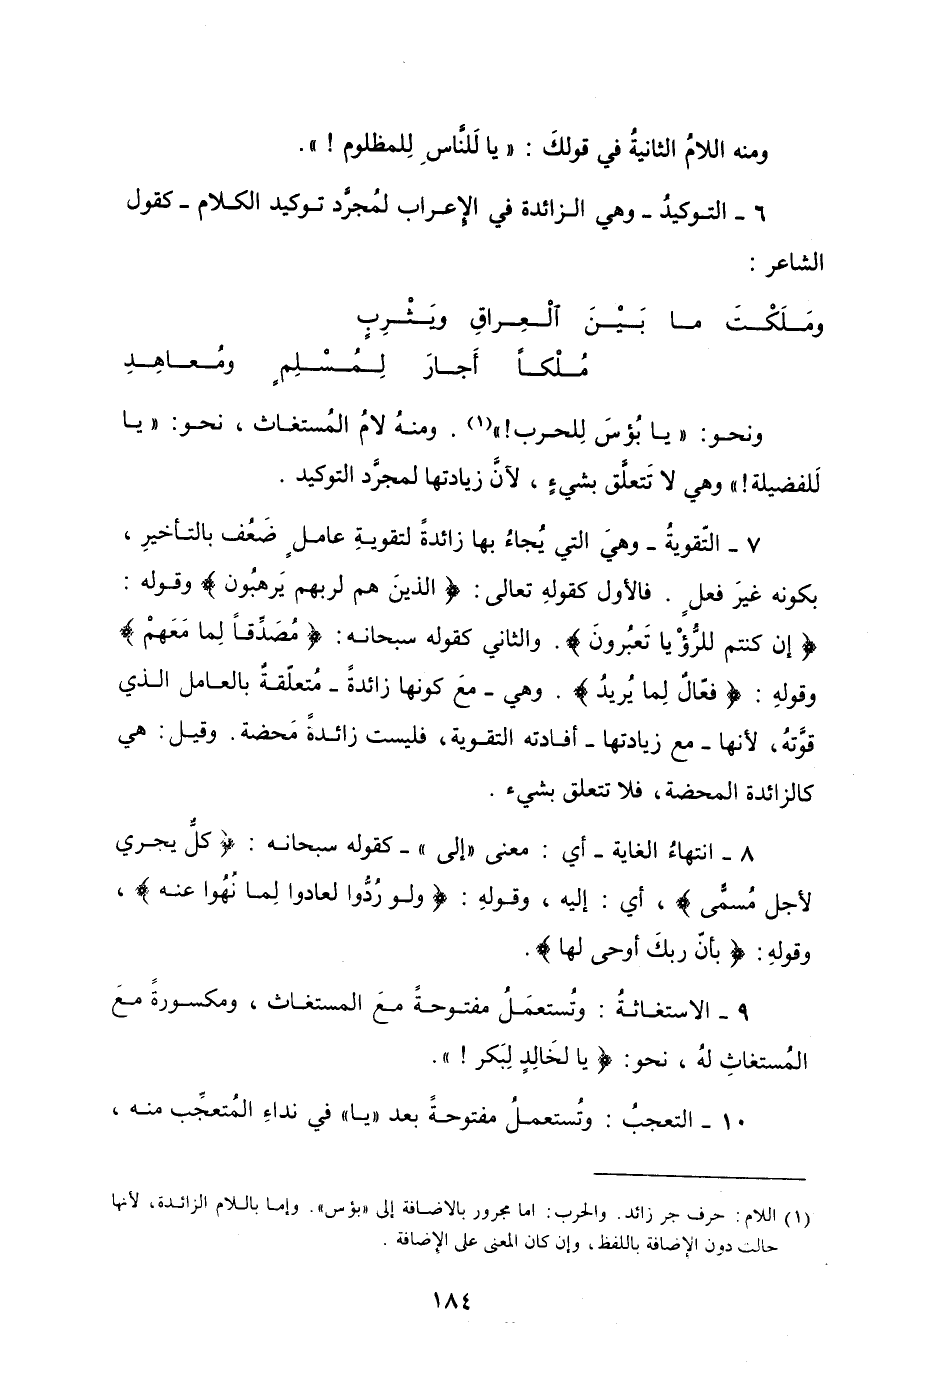 ومنه اللامُ الثانيةُ في قولكَ : « يا لَلنَّاسِ لِلمظلوم ! ».
٦ ـ التـوكيدُ ـ وهي الـزائدة في الإعـراب لمُجرَّد تـوكيد الكـلام ـ كقول
الشاعر :
ومَـلَكْـتَ مـا بَـيْـنَ ٱلْـعِـراقِ ويَـثْـرِبٍ
مُـلْكـاً أَجـارَ لِـمُـسْـلِمٍ ومُـعـاهِـدِ
ونحـو: « يـا بُؤسَ لِلحرب!»(١) . ومنـهُ لامُ المُستغـاث ، نحـو: « يـا
لَلفضيلة!» وهي لا تَتعلَّق بشيءٍ ، لأنَّ زيادتها لمجرَّد التوكيد .
٧ ـ التّقويةُ ـ وهيَ التي يُجاءُ بها زائدةً لتقويـةِ عامـلٍ ضَعُف بالتـأخيرِ ،
بكونه غيرَ فعلٍ . فالأول كقولهِ تعالى : ﴿ الذينَ هم لربهم يَرهبُون ﴾ وقـوله :
﴿ إن كنتم للرُّؤْيا تَعبُرونَ ﴾. والثاني كقوله سبحانـه: ﴿ مُصَدِّقـاً لِما مَعَهمْ ﴾
وقولهِ : ﴿ فعّالٌ لِما يُريدُ ﴾ . وهي ـ معَ كونها زائدةً ـ مُتعلّقـةٌ بالعامل الـذي
قوَّتهُ، لأنها ـ مع زيادتها ـ أفـادته التقـوية، فليست زائـدةً مَحضة. وقيـل: هي
كالزائدة المحضة، فلا تتعلق بشيء .
٨ ـ انتهاءُ الغاية ـ أي : معنى «إلى » ـ كقوله سبحانـه : ﴿ كلٌّ يجـري
لأجل مُسمًّى ﴾ ، أي : إليه ، وقـولهِ : ﴿ ولـو رُدُّوا لعادوا لِمـا نُهُوا عنـه ﴾ ،
وقولهِ: ﴿ بأنّ ربكَ أوحى لها ﴾.
٩ ـ الاستغـاثـةُ : وتُستعمَـلُ مفتـوحـةً مـعَ المستغـاث ، ومكسـورةً مـعَ
المُستغاثِ لهُ ، نحو: ﴿ يا لَخالِدٍ لِبَكر ! ».
١٠ ـ التعجبُ : وتُستعمـلُ مفتوحـةً بعد «يـا» في نداءِ المُتعجَّب منـه ،
(١) اللام: حرف جر زائد. والحرب: اما مجرور بالاضـافة إلى «بؤس». وإمـا بالـلام الزائـدة، لأنها
حالت دون الإضافة باللفظ، وإن كان المعنى على الإضافة .
١٨٤